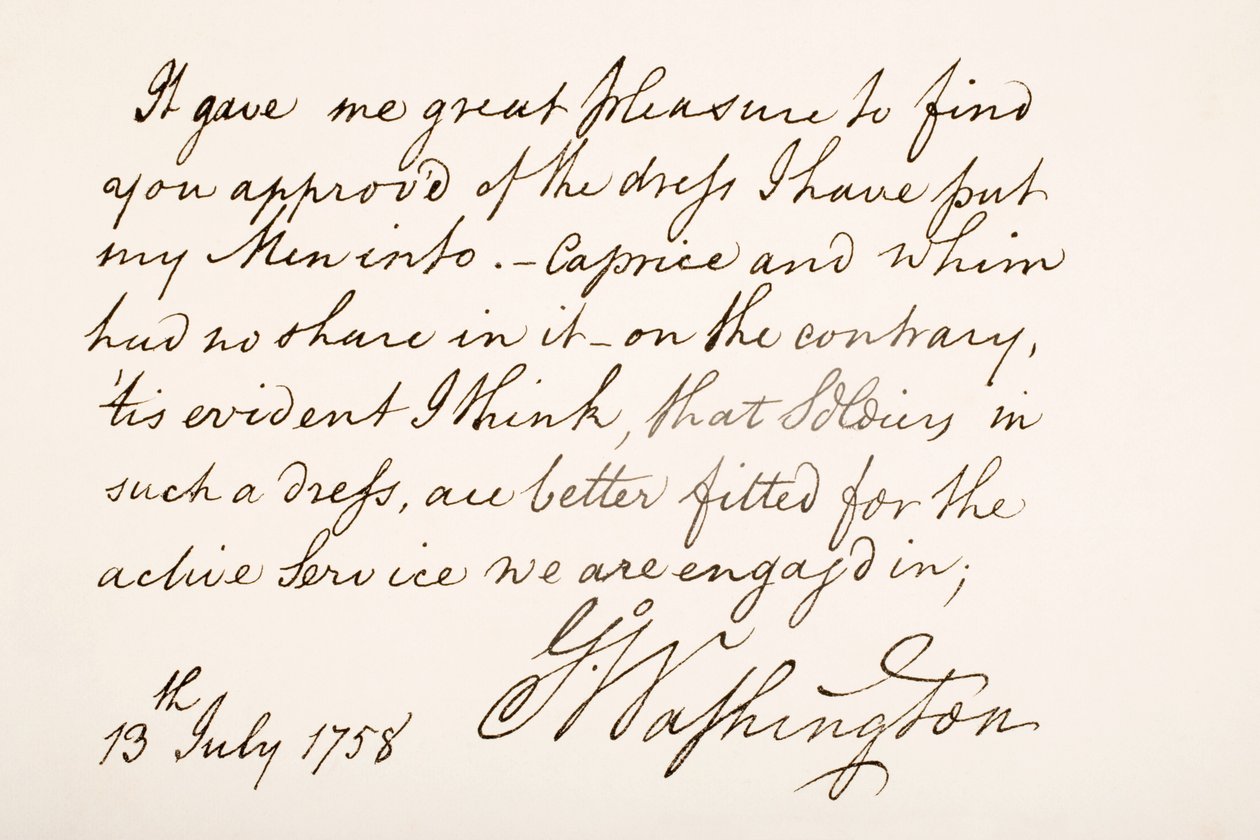 It gave me great pleasure to find
you approv'd of the dress I have put
my Men into. – Caprice and whim
had no share in it – on the contrary,
'tis evident I think, that Soldiers in
such a dress, are better fitted for the
active Service we are engag'd in;
Go. Washington
13th July 1758